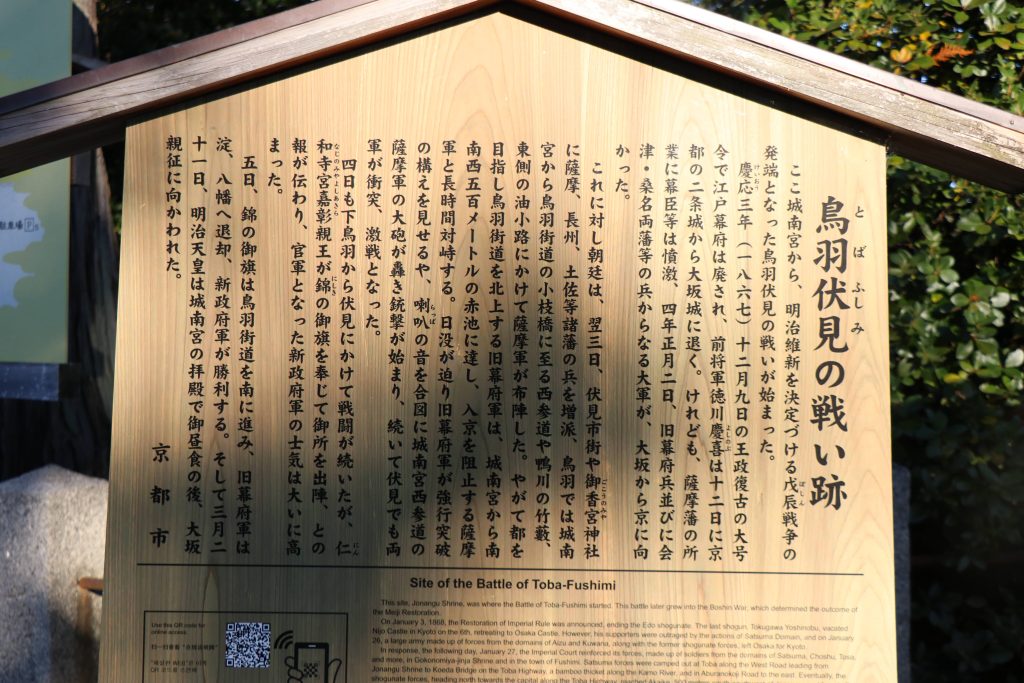 鳥羽伏見の戦い跡
とばふしみ
ここ城南宮から、明治維新を決定づける戊辰戦争の
ぼしん
発端となった鳥羽伏見の戦いが始まった。
慶応三年（一八六七）十二月九日の王政復古の大号
けいおう
令で江戸幕府は廃され、前将軍徳川慶喜は十二日に京
よしのぶ
都の二条城から大坂城に退く。けれども、薩摩藩の所
業に幕臣等は憤激、四年正月二日、旧幕府兵並びに会
津・桑名両藩等の兵からなる大軍が、大坂から京に向
かった。
これに対し朝廷は、翌三日、伏見市街や御香宮神社
ごこうのみや
に薩摩、長州、土佐等諸藩の兵を増派、鳥羽では城南
宮から鳥羽街道の小枝橋に至る西参道や鴨川の竹藪、
東側の油小路にかけて薩摩軍が布陣した。やがて都を
目指し鳥羽街道を北上する旧幕府軍は、城南宮から南
南西五百メートルの赤池に達し、入京を阻止する薩摩
軍と長時間対峙する。日没が迫り旧幕府軍が強行突破
の構えを見せるや、喇叭の音を合図に城南宮西参道の
らっぱ
薩摩軍の大砲が轟き銃撃が始まり、続いて伏見でも両
軍が衝突、激戦となった。
四日も下鳥羽から伏見にかけて戦闘が続いたが、仁
にん
和寺宮嘉彰親王が錦の御旗を奉じて御所を出陣、との
なじのみやよしあきら
にしき
報が伝わり、官軍となった新政府軍の士気は大いに高
まった。
五日、錦の御旗は鳥羽街道を南に進み、旧幕府軍は
淀、八幡へ退却、新政府軍が勝利する。そして三月二
十一日、明治天皇は城南宮の拝殿で御昼食の後、大坂
親征に向かわれた。
京都市
Site of the Battle of Toba-Fushimi
This site, Jonangu Shrine, was where the Battle of Toba-Fushimi started. This battle later grew into the Boshin War, which determined the outcome of
the Meiji Restoration.
On January 3, 1868, the Restoration of Imperial Rule was announced, ending the Edo shogunate. The last shogun, Tokugawa Yoshinobu, vacated
Nijo Castle in Kyoto on the 6th, retreating to Osaka Castle. However, his supporters were outraged by the actions of Satsuma Domain, and on January
26, a large army made up of forces from the domains of Aizu and Kuwana, along with the former shogunate forces, left Osaka for Kyoto.
In response, the following day, January 27, the Imperial Court reinforced its forces, made up of soldiers from the domains of Satsuma, Choshu, Tosa,
and more, in Gokonomiya-jinja Shrine and in the town of Fushimi. Satsuma forces were camped out at Toba along the West Road leading from
Jonangu Shrine to Koeda Bridge on the Toba Highway, a bamboo thicket along the Kamo River, and in Aburanokoji Road to the east. Eventually, the
shogunate forces, heading north towards the capital along the Toba Highway,
Use this QR code for
online access.
駐車場 P